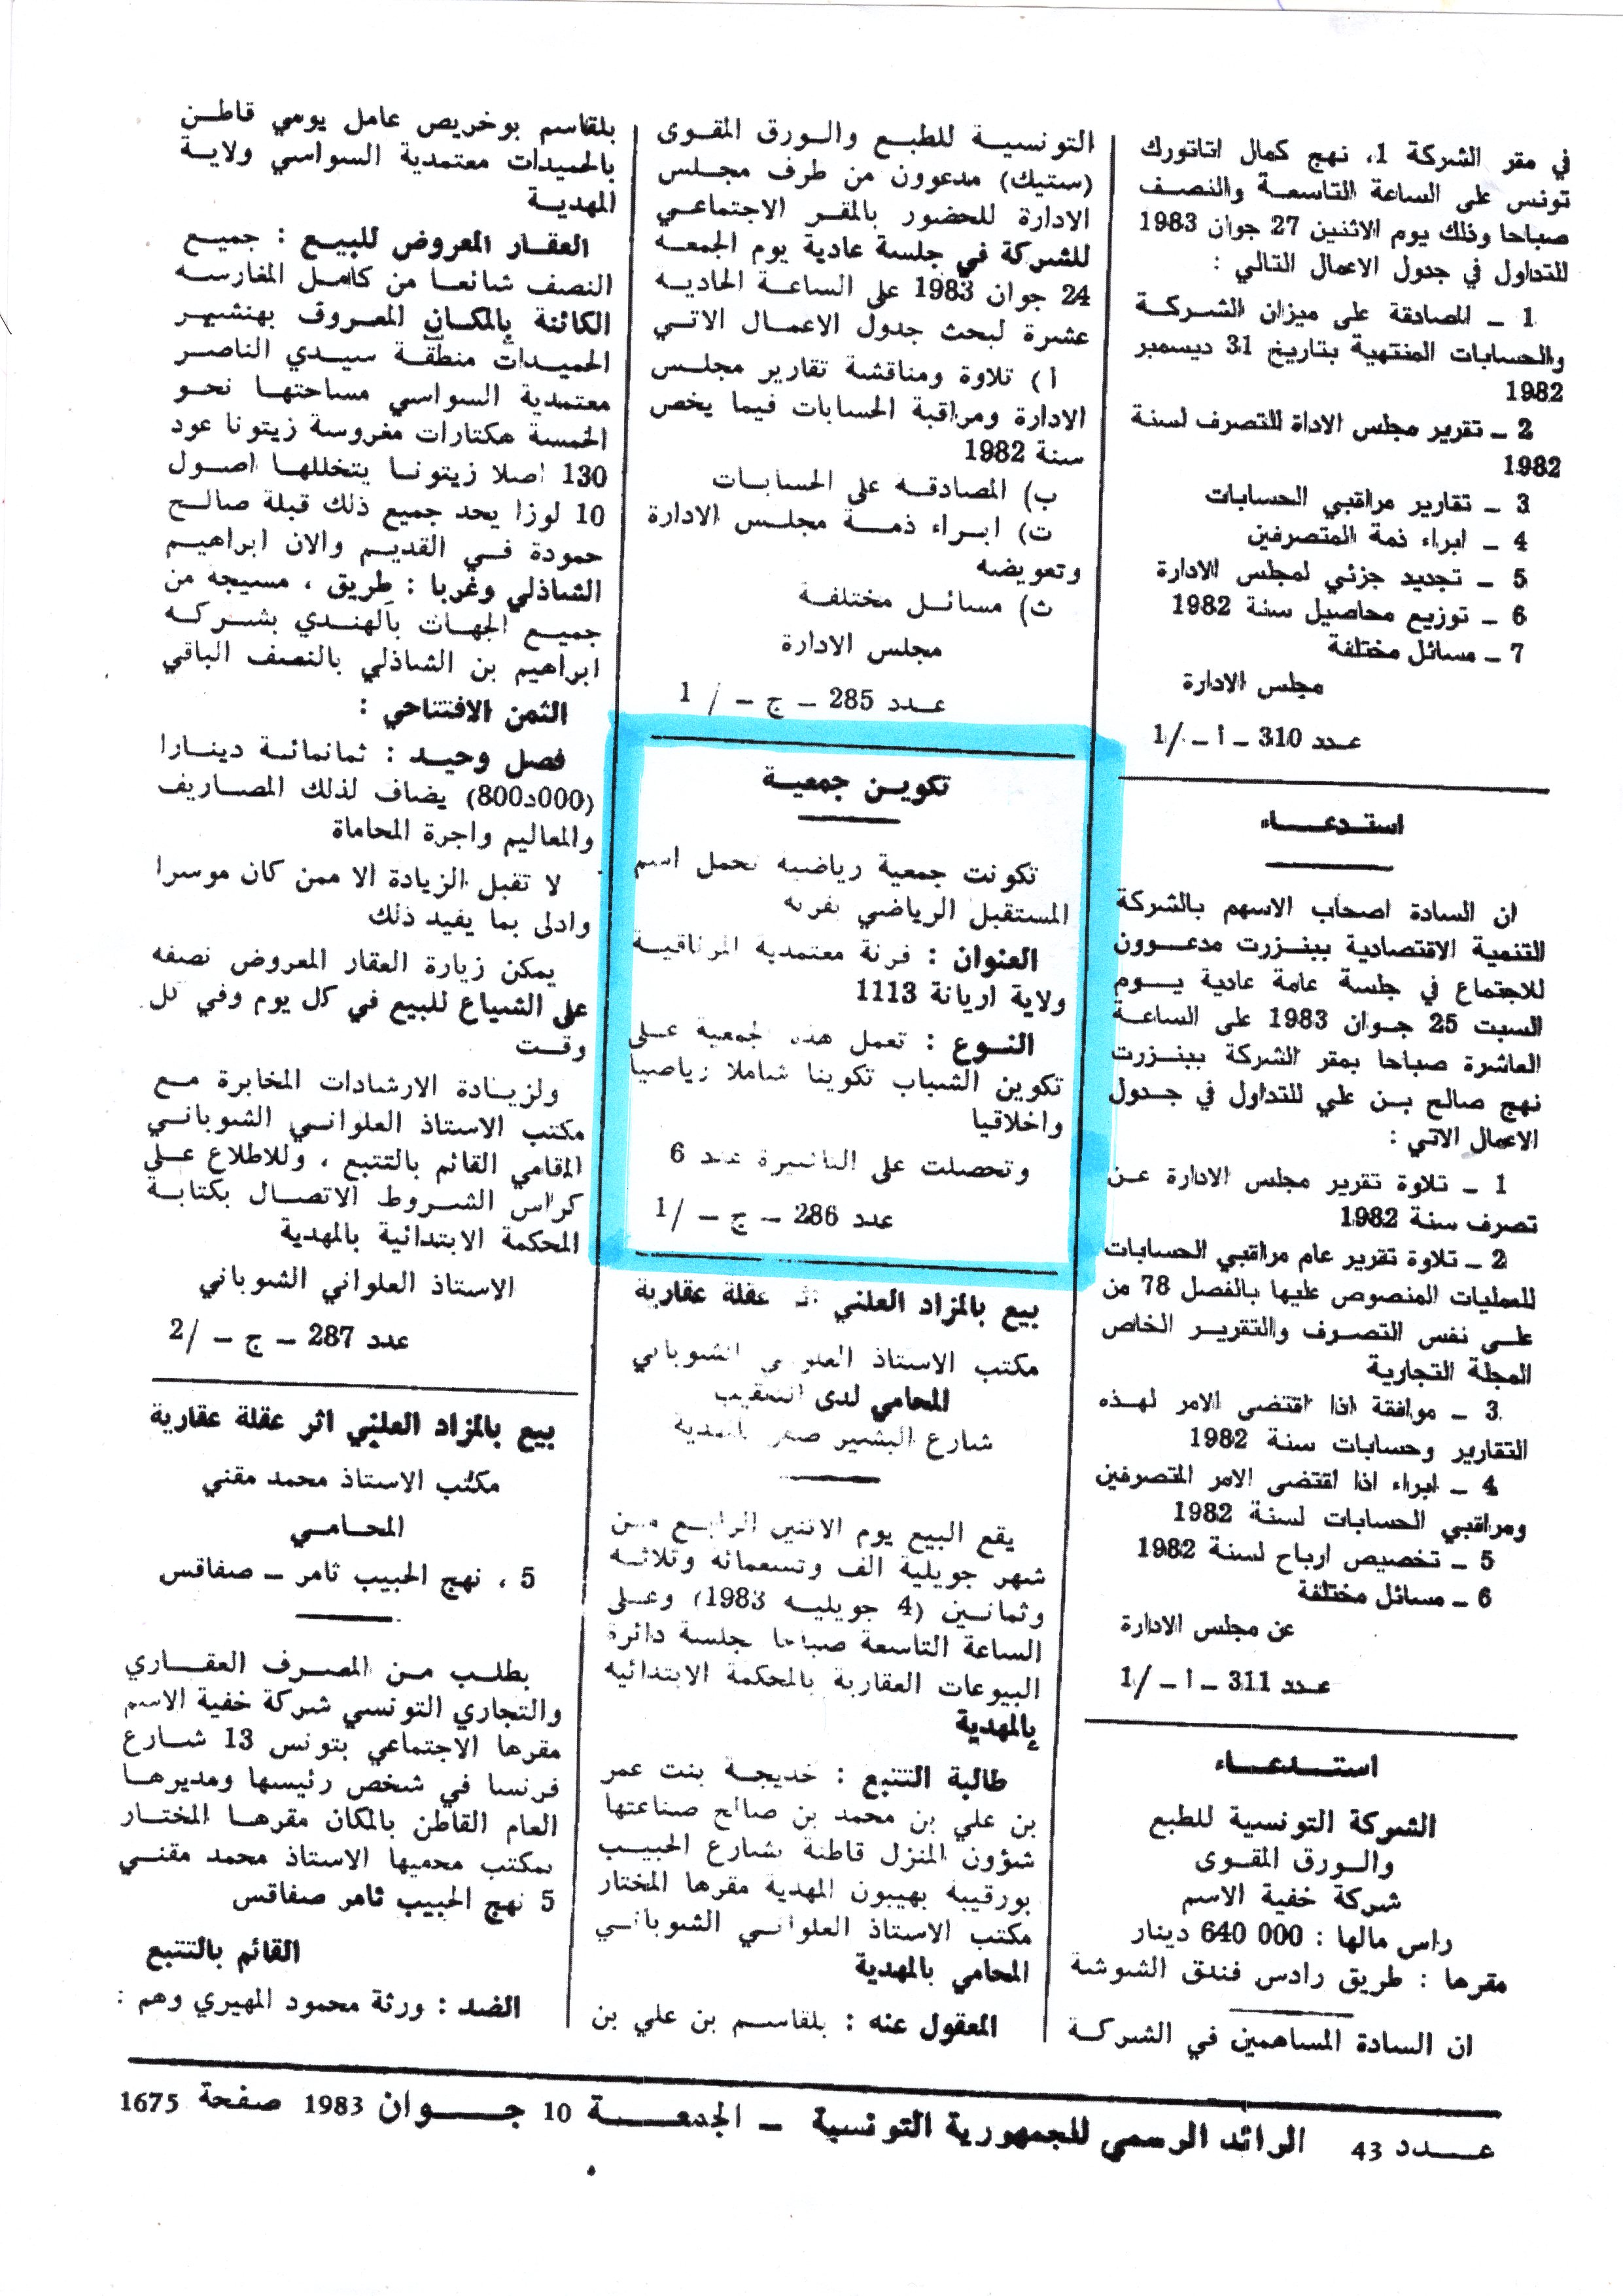 في مقر الشركة 1، نهج كمال اتاتورك
تونس على الساعة التاسعة والنصف
صباحا وذلك يوم الاثنين 27 جوان 1983
للتداول في جدول الاعمال التالي :
1 ـ المصادقة على ميزان الشركة
والحسابات المنتهية بتاريخ 31 ديسمبر
1982
2 ـ تقرير مجلس الاداة للتصرف لسنة
1982
3 ـ تقارير مراقبي الحسابات
4 ـ ابراء ذمة المتصرفين
5 ـ تجديد جزئي لمجلس الادارة
6 ـ توزيع محاصيل سنة 1982
7 ـ مسائل مختلفة
مجلس الادارة
عدد 310 ـ ا ـ /1
استدعاء
ان السادة اصحاب الاسهم بالشركة
التنمية الاقتصادية ببنزرت مدعوون
للاجتماع في جلسة عامة عادية يوم
السبت 25 جوان 1983 على الساعة
العاشرة صباحا بمقر الشركة ببنزرت
نهج صالح بن علي للتداول في جدول
الاعمال الاتي :
1 ـ تلاوة تقرير مجلس الادارة عن
تصرف سنة 1982
2 ـ تلاوة تقرير عام مراقبي الحسابات
للعمليات المنصوص عليها بالفصل 78 من
على نفس التصرف والتقرير الخاص
المجلة التجارية
3 ـ موافقة اذا اقتضى الامر لهذه
التقارير وحسابات سنة 1982
4 ـ ابراء اذا اقتضى الامر المتصرفين
ومراقبي الحسابات لسنة 1982
5 ـ تخصيص ارباح لسنة 1982
6 ـ مسائل مختلفة
عن مجلس الادارة
عدد 311 ـ ا ـ /1
استدعاء
الشركة التونسية للطبع
والورق المقوى
شركة خفية الاسم
راس مالها : 000 640 دينار
مقرها : طريق رادس فندق الشوشة
ان السادة المساهمين في الشركة
التونسية للطبع والورق المقوى
(ستيك) مدعوون من طرف مجلس
الادارة للحضور بالمقر الاجتماعي
للشركة في جلسة عادية يوم الجمعة
24 جوان 1983 على الساعة الحادية
عشرة لبحث جدول الاعمال الاتي
ا) تلاوة ومناقشة تقارير مجلس
الادارة ومراقبة الحسابات فيما يخص
سنة 1982
ب) المصادقة على الحسابات
ت) ابراء ذمة مجلس الادارة
وتعويضه
ث) مسائل مختلفة
مجلس الادارة
عدد 285 ـ ج ـ / 1
تكوين جمعية
تكونت جمعية رياضية تحمل اسم
المستقبل الرياضي بفرنة
العنوان : فرنة معتمدية المرناقية
ولاية اريانة 1113
النوع : تعمل هذه الجمعية على
تكوين الشباب تكوينا شاملا رياضيا
واخلاقيا
وتحصلت على التاشيرة عدد 6
عدد 286 ـ ج ـ /1
بيع بالمزاد العلني اثر عقلة عقارية
مكتب الاستاذ العلواني الشوباني
المحامي لدى التعقيب
شارع البشير صفر المهدية
يقع البيع يوم الاثنين الرابع من
شهر جويلية الف وتسعمائة وثلاثة
وثمانين (4 جويلية 1983) وعلى
الساعة التاسعة صباحا بجلسة دائرة
البيوعات العقارية بالمحكمة الابتدائية
بالمهدية
طالبة التتبع : خديجة بنت عمر
بن علي بن محمد بن صالح صناعتها
شؤون المنزل قاطنة بشارع الحبيب
بورقيبة بهيبون المهدية مقرها المختار
مكتب الاستاذ العلواني الشوباني
المحامي بالمهدية
المعقول عنه : بلقاسم بن علي بن
بلقاسم بوخريص عامل يومي قاطن
بالحميدات معتمدية السواسي ولاية
المهدية
العقار المعروض للبيع : جميع
النصف شائعا من كامل المغارسة
الكائنة بالمكان المعروف بهنشير
الحميدات منطقة سيدي الناصر
معتمدية السواسي مساحتها نحو
الخمسة هكتارات مغروسة زيتونا عود
130 اصلا زيتونا يتخللها اصول
10 لوزا يحد جميع ذلك قبلة صالح
حمودة في القديم والان ابراهيم
الشاذلي وغربا : طريق ، مسيجه من
جميع الجهات بالهندي بشركة
ابراهيم بن الشاذلي بالنصف الباقي
الثمن الافتتاحي :
فصل وحيد : ثمانمائة دينارا
(800د000) يضاف لذلك المصاريف
والمعاليم واجرة المحاماة
لا تقبل الزيادة الا ممن كان موسرا
وادلى بما يفيد ذلك
يمكن زيارة العقار المعروض نصفه
على الشياع للبيع في كل يوم وفي كل
وقت
ولزيادة الارشادات المخابرة مع
مكتب الاستاذ العلواني الشوباني
المقامي القائم بالتتبع ، وللاطلاع على
كراس الشروط الاتصال بكتابة
المحكمة الابتدائية بالمهدية
الاستاذ العلواني الشوباني
عدد 287 ـ ج ـ /2
بيع بالمزاد العلني اثر عقلة عقارية
مكتب الاستاذ محمد مقني
المحامي
5 ، نهج الحبيب ثامر ـ صفاقس
بطلب من المصرف العقاري
والتجاري التونسي شركة خفية الاسم
مقرها الاجتماعي بتونس 13 شارع
فرنسا في شخص رئيسها ومديرها
العام القاطن بالمكان مقرها المختار
بمكتب محميها الاستاذ محمد مقني
5 نهج الحبيب ثامر صفاقس
القائم بالتتبع
الضد : ورثة محمود المهيري وهم :
عدد 43 الرائد الرسمي للجمهورية التونسية ـ الجمعة 10 جوان 1983 صفحة 1675